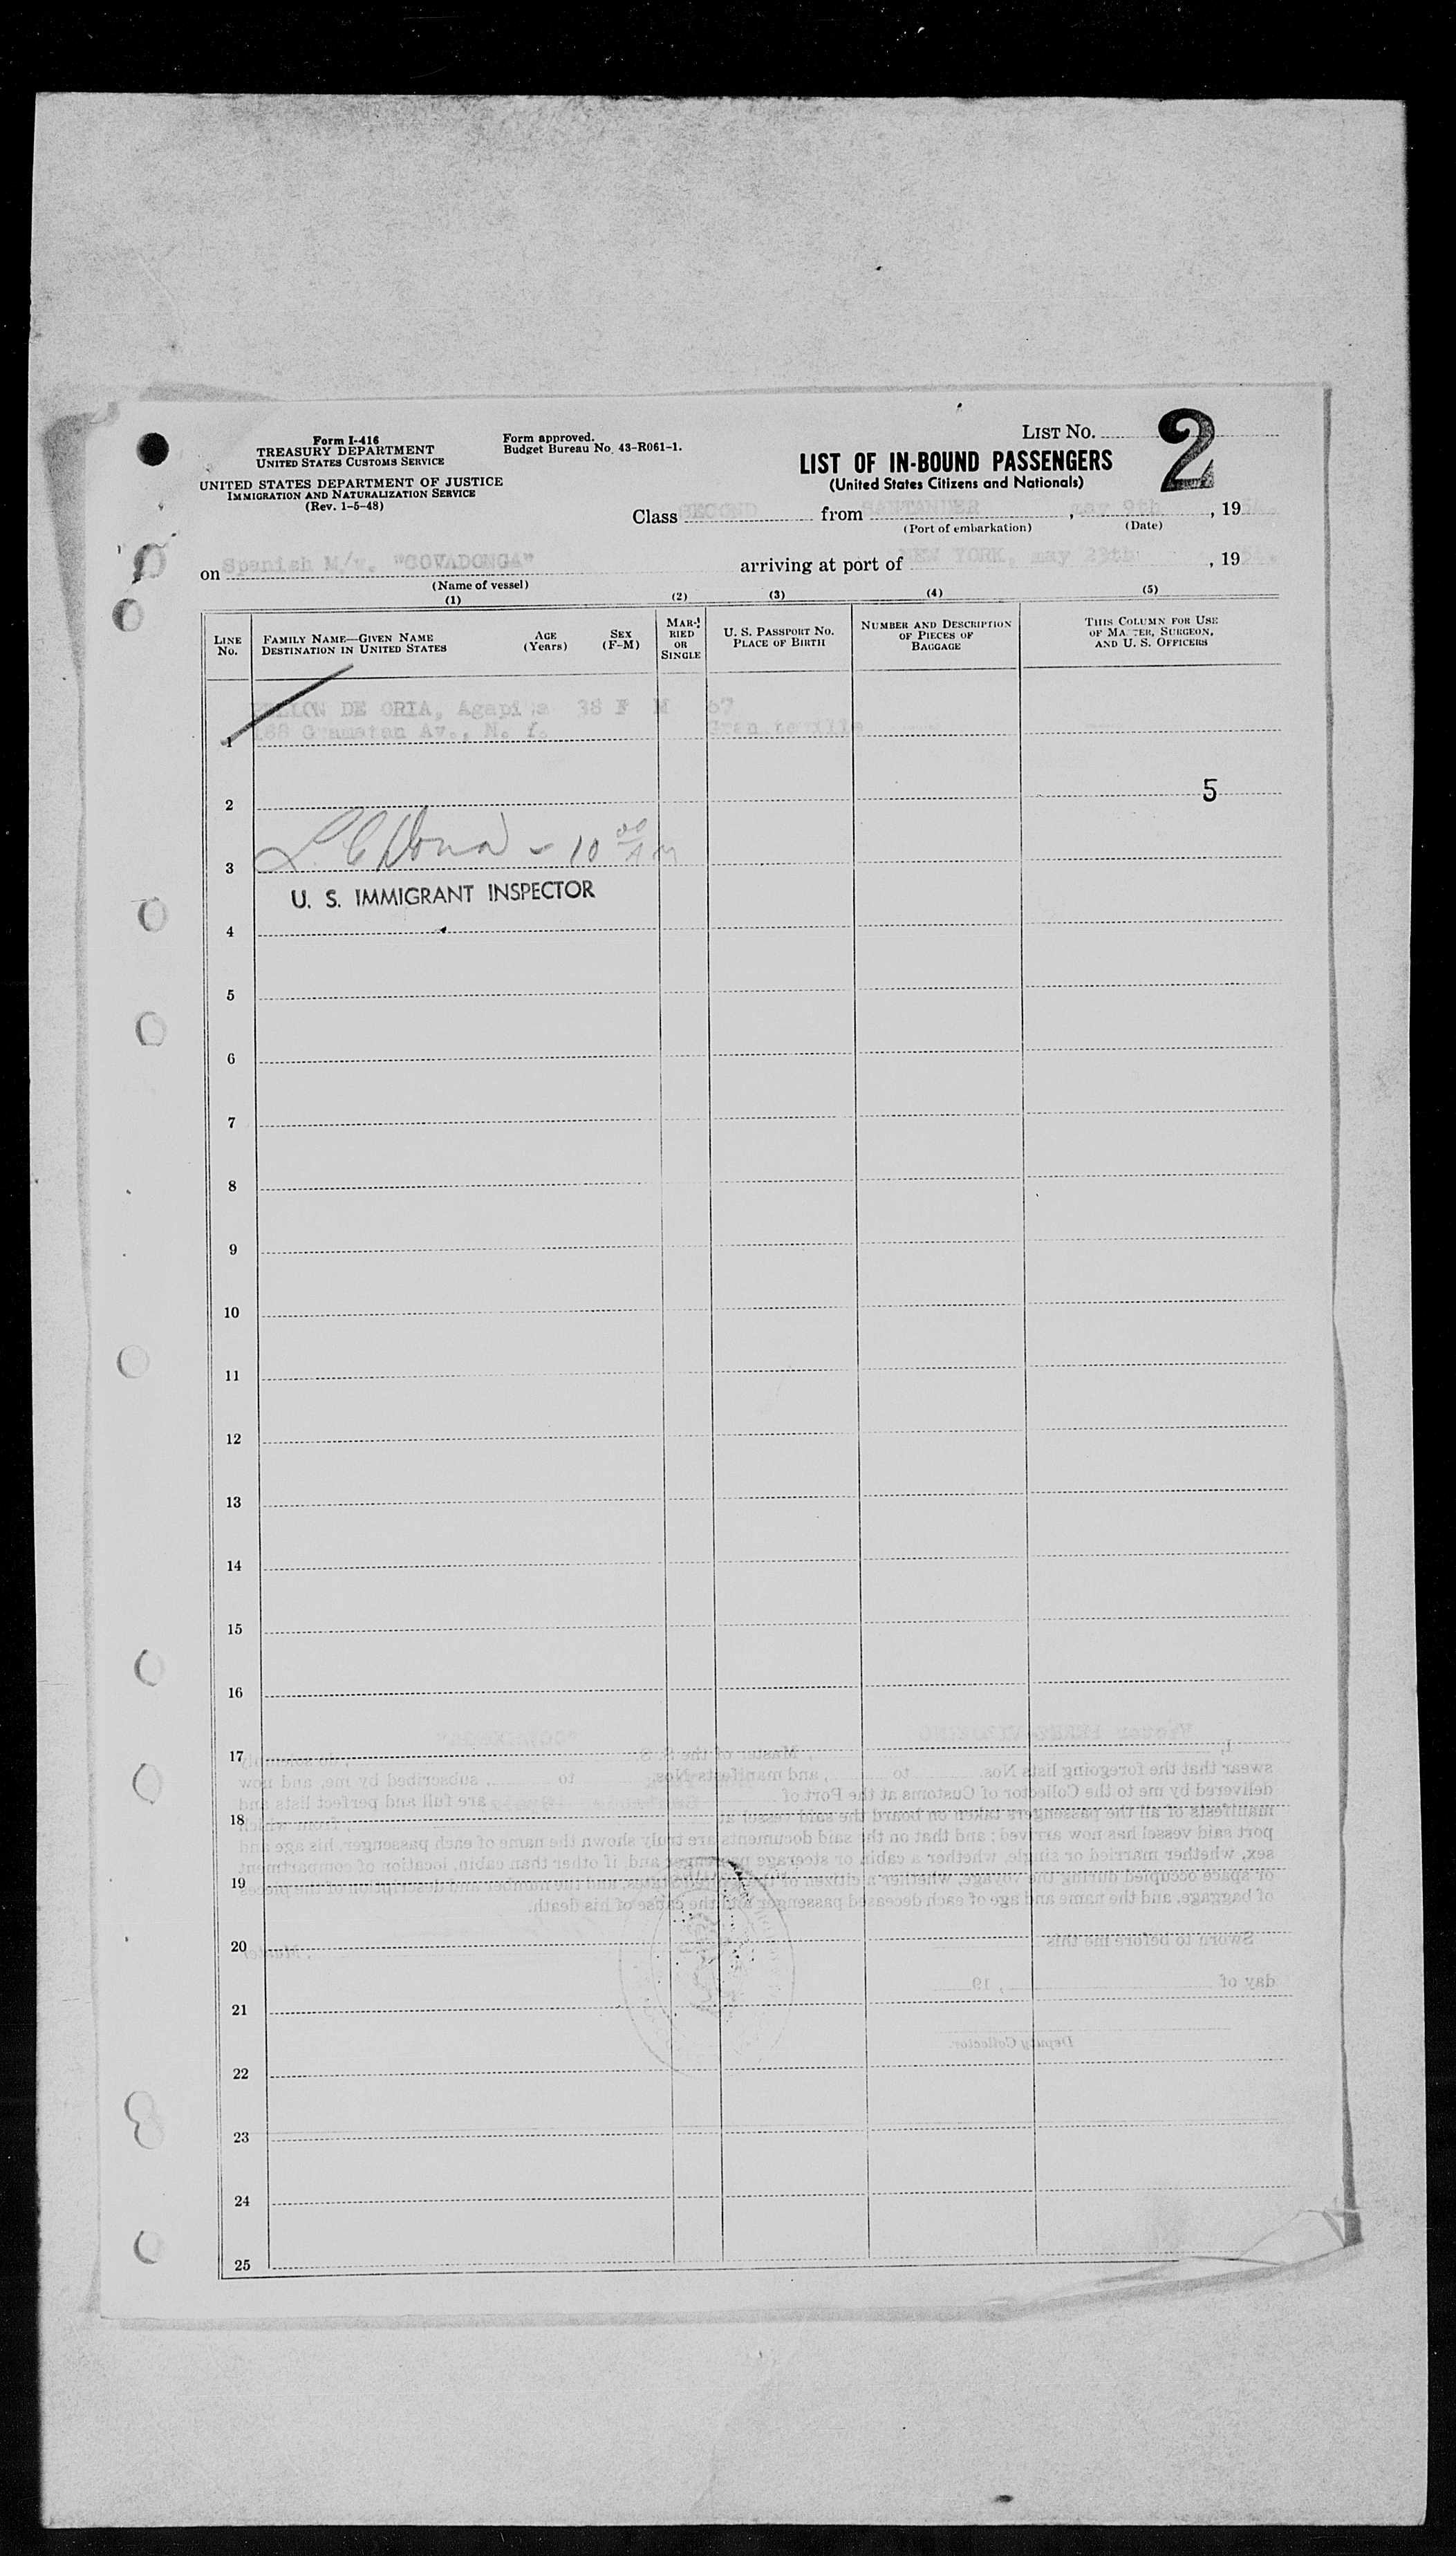 Form I-416
TREASURY DEPARTMENT
UNITED STATES CUSTOMS SERVICE
UNITED STATES DEPARTMENT OF JUSTICE
IMMIGRATION AND NATURALIZATION SERVICE
(Rev. 1-5-48)
Form approved.
Budget Bureau No. 43-R061-1.
LIST NO. 2
LIST OF IN-BOUND PASSENGERS
(United States Citizens and Nationals)
Class SECOND from SANTANDER, May 9th, 19
(Port of embarkation) (Date)
on Spanish M/v. "COVADONGA" arriving at port of NEW YORK, may 23th, 19
(Name of vessel)
(1) (2) (3) (4) (5)
LINE No.
FAMILY NAME—GIVEN NAME
DESTINATION IN UNITED STATES
AGE (Years)
SEX (F-M)
MARRIED OR SINGLE
U. S. PASSPORT NO.
PLACE OF BIRTH
NUMBER AND DESCRIPTION
OF PIECES OF
BAGGAGE
THIS COLUMN FOR USE
OF MASTER, SURGEON,
AND U. S. OFFICERS
DE ORIA, Agapina 38 F M 67
1 Gramatan Av., N. Y.
2 5
3 10 00 AM
U. S. IMMIGRANT INSPECTOR
4
5
6
7
8
9
10
11
12
13
14
15
16
17
18
19
20
21
22
23
24
25
I, , Master of the S.S. , do solemnly
swear that the foregoing lists Nos. to , and manifests Nos. to , subscribed by me, and now
delivered by me to the Collector of Customs at the Port of are full and perfect lists and
manifests of all the passengers taken on board the said vessel at , from which
port said vessel has now arrived; and that on the said documents are truly shown the name of each passenger, his age and
sex, whether married or single, whether a cabin or steerage passenger and, if other than cabin, location of compartment
or space occupied during the voyage, whether a citizen of the United States, and the number and description of the pieces
of baggage, and the name and age of each deceased passenger with the cause of his death.
, Master
Sworn to before me this
day of , 19
Deputy Collector.